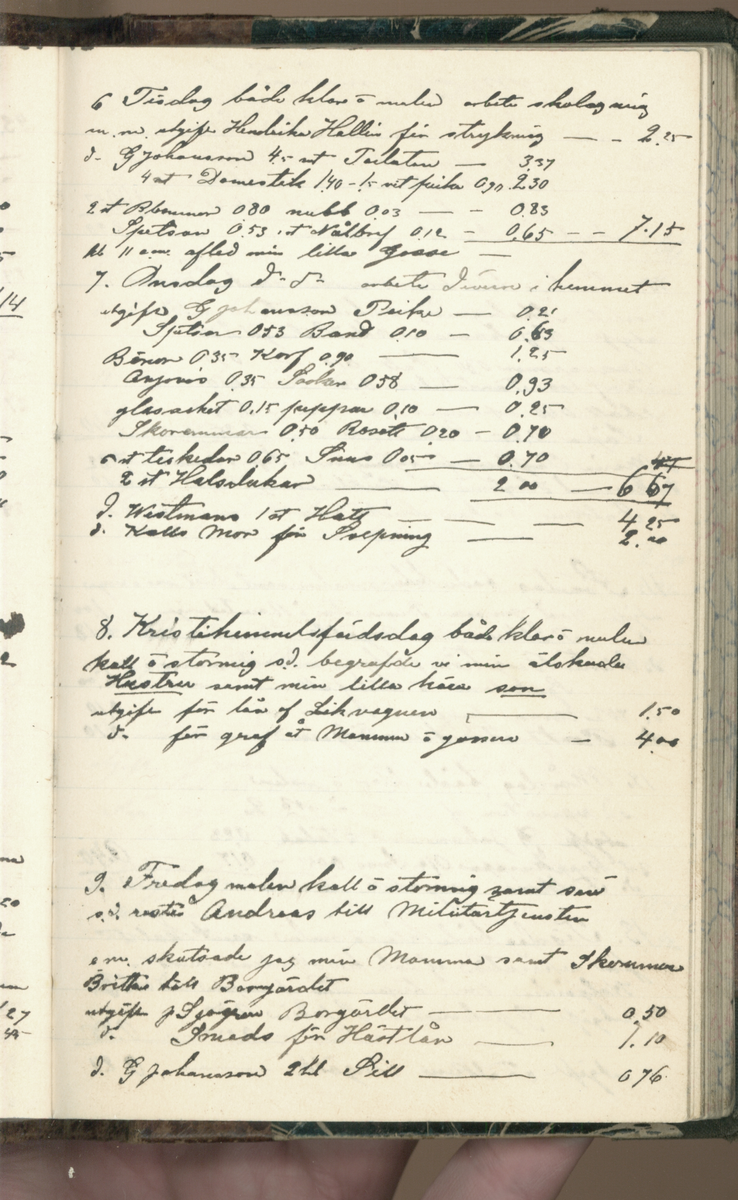 6 Tisdag både klar o mulen arbete skolagning
m.m. utgift Hendrika Hallin för strykning — - 2.25
d. G Johansson 4.5 st — 3.37
4 st Domestik 1.40 - 0.90 2.30
2 st 0.80 nubb 0.03 — - 0.83
Spetsar 0.53 1 st Nålbref 0.12 - 0.65 - - 7.15
kl 11 e.m. afled min lilla Gosse —
7. Onsdag d - d - arbete Diverse i hemmet
utgift G Johansson — 0.21
Spetsar 0.53 Band 0.10 — 0.63
Bönor 0.35 Korf 0.90 — 1.25
Anjovis 0.35 Socker 0.58 — 0.93
0.15 peppar 0.10 — 0.25
0.50 Rosett 0.20 - 0.70
6 st teskedar 0.65 Snus 0.05 — 0.70
2 st Halsdukar — 2 00 — 6 67
d. Westmans 1 st Hatt — — 4 25
d. Kalls Mor för Svepning — 2.00
8. Kristihimmelsfärdsdag både klar o mulen
kall o stormig s.d. begrafde vi min älskade
Hustru samt min lilla kära son
utgift för lån af Likvagnen — 1.50
d. för graf åt Mamma o gossen — 4.00
9. Fredag mulen kall o stormig samt snö
s.d. reste Andreas till Militärtjensten
e m. skutsade jag min Mamma samt
Brittas till Borgärdet
utgift p Sjögren Borgärdet — 0.50
d. Smeds för Hästlån — 1.10
d. G Johansson 2 kl Sill — 0 76